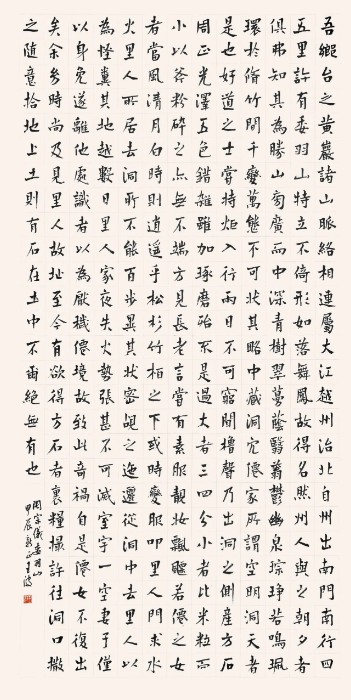 吾鄉台之黃巖諸山脈絡相連屬大江越州治北自州出南門南行四
五里許有委羽山特立不倚形如落舞鳳故得名然州人與之朝夕者
俱弗知其為勝山旁廣而中深青樹翠蔓蔭翳蓊鬱幽泉琮琤若鳴珮
環於脩竹間千變萬態不可狀其略中藏洞穴僊家所謂空明洞天者
是也好道之士嘗持炬入行兩日不可窮聞櫓聲乃出洞之側產方石
周正光澤五色錯雜雖加琢磨殆不是過大者三四分小者比米粒而
小以斧粉碎之亦無不端方見長老言嘗有素服靚妝飄飄若僊之女
者當風清月白時則逍遙乎松杉竹柏之下或時變服叩里人門求水
火里人所居去洞所不能百步異其狀密覘之迤邐從洞中去里人以
為怪冀其他越數日人家夜失火勢張甚不可滅室宇一空妻子僅
以身免遂離他處識者以為厭穢僊境故致此奇禍自是僊女不復出
矣余幼時尚及見里人故址至今有欲得方石者裹糧撮許往洞口撒
之隨意拾地上土則有石在土中不爾絕無有也
陶宗儀委羽山
甲辰夏